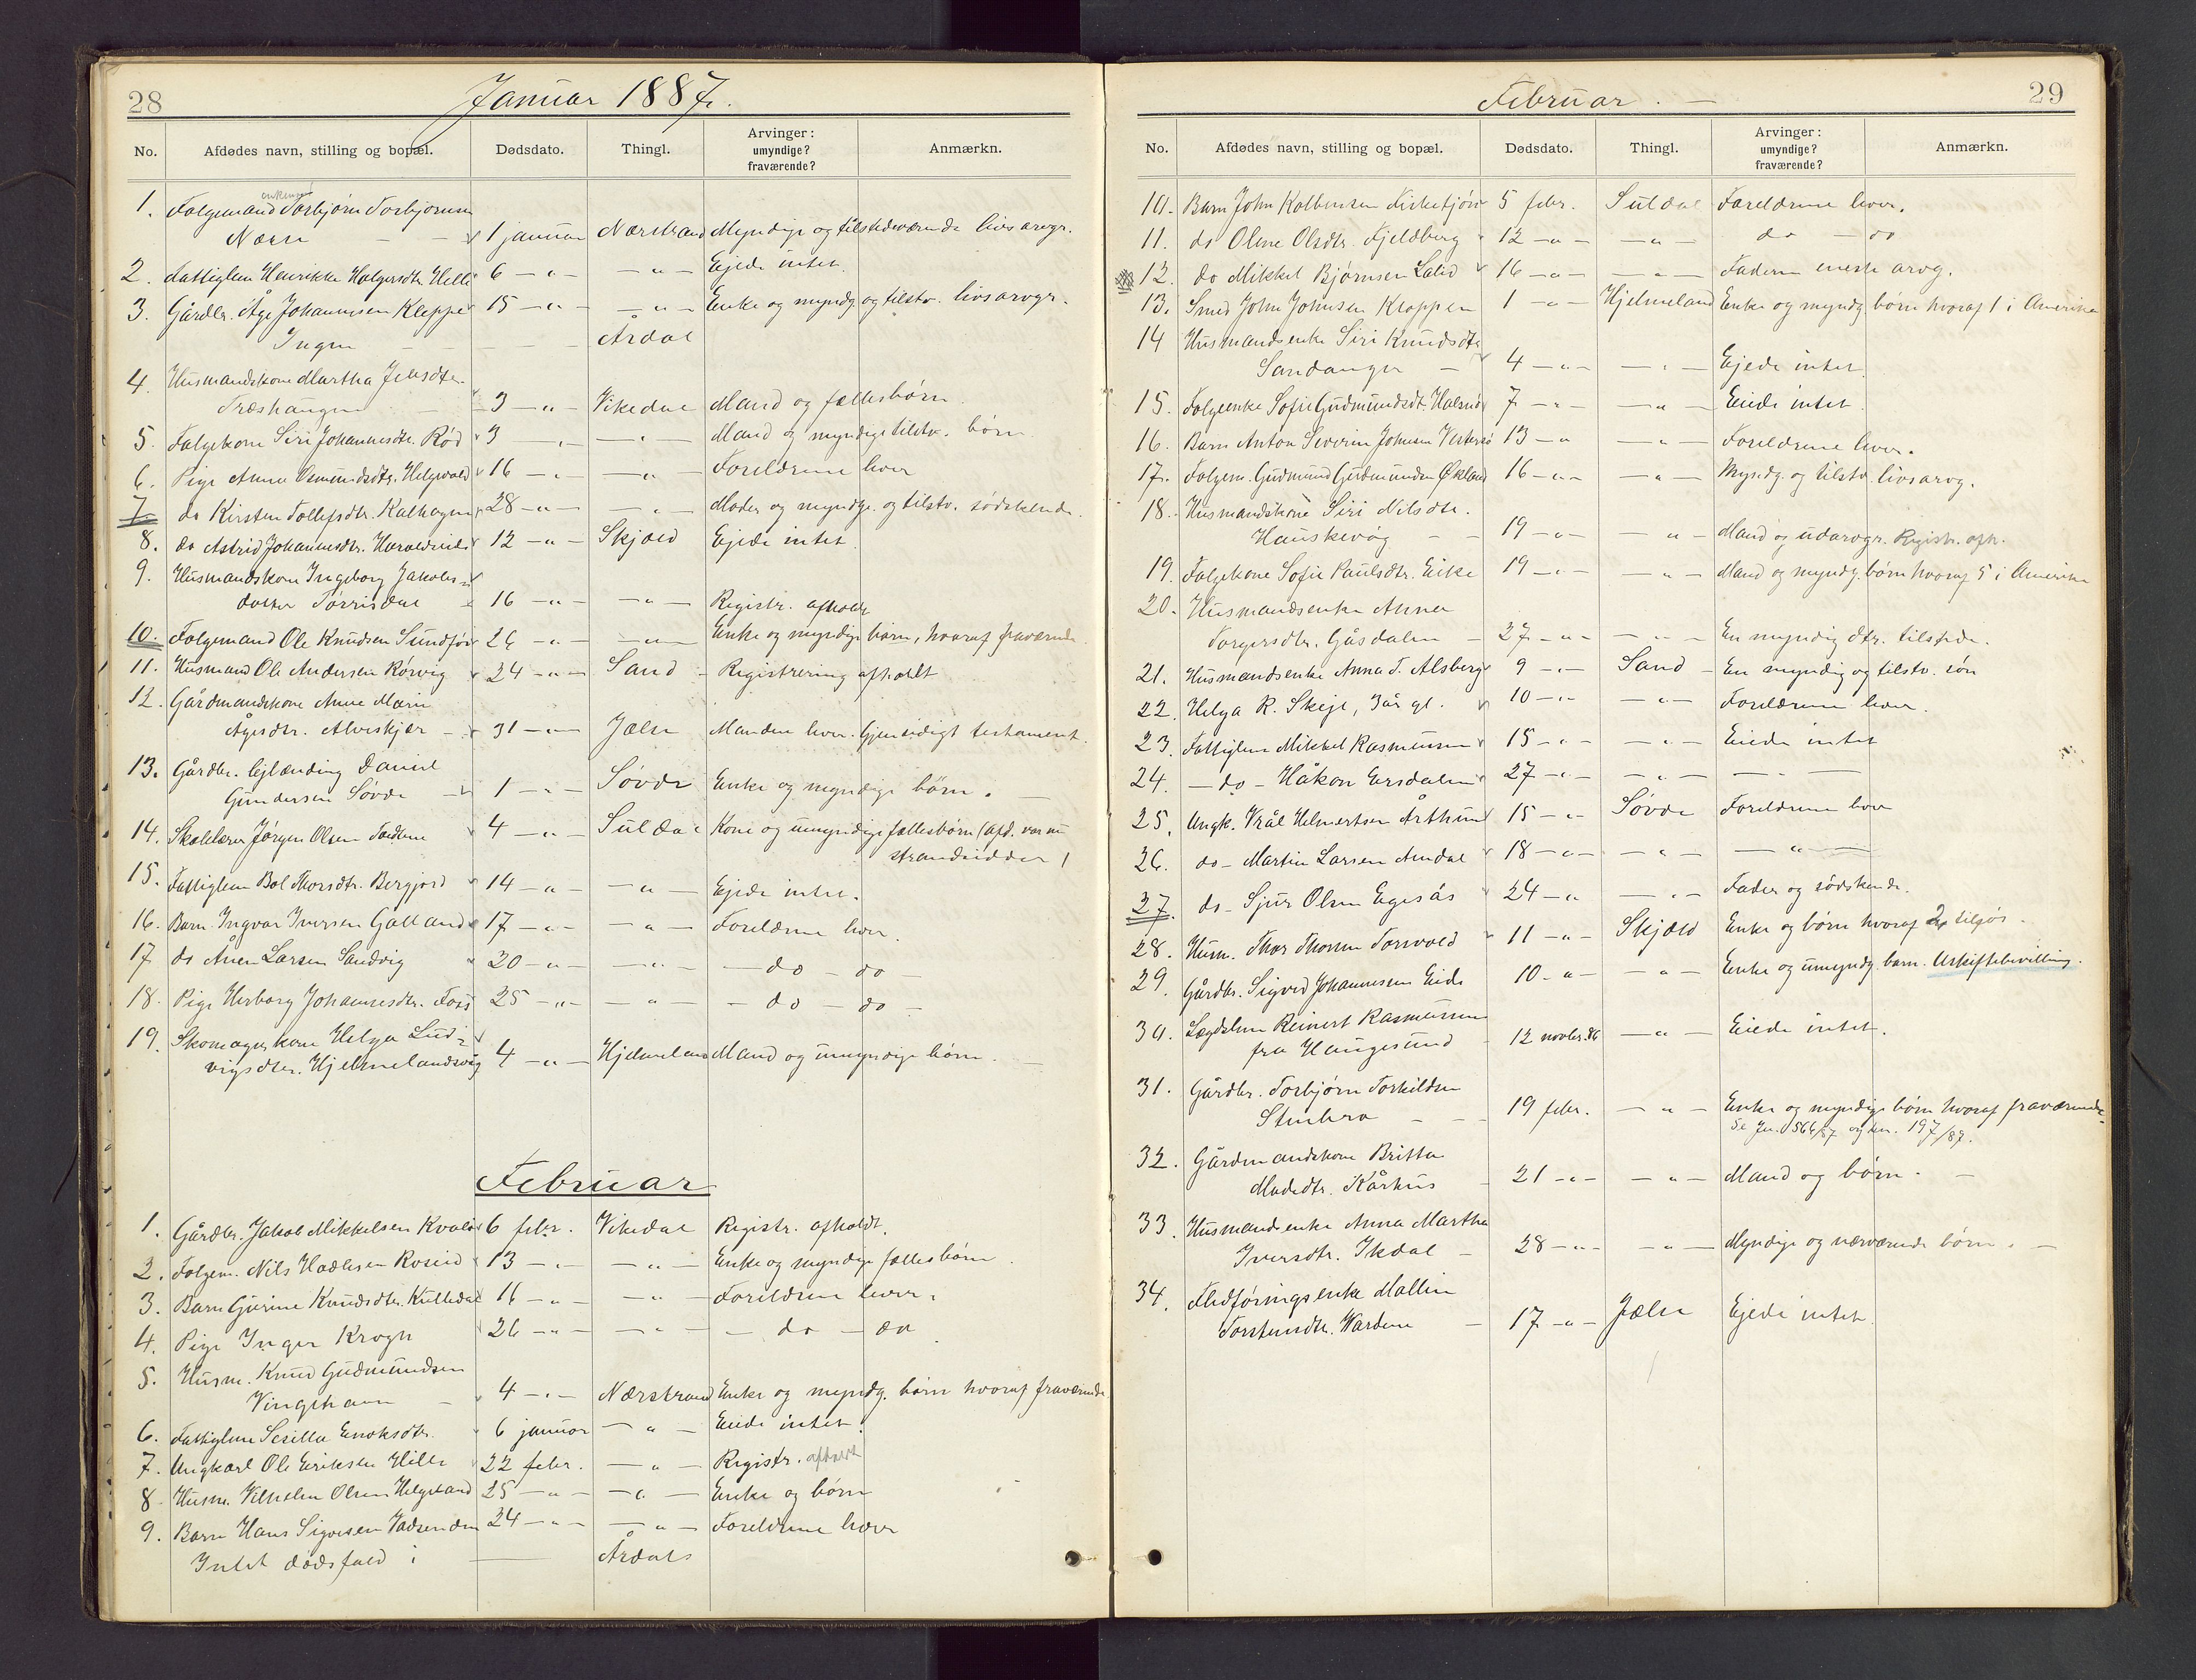 28
Januar 1887.
No. Afdødes navn, stilling og bopæl. Dødsdato. Thingl. Arvinger: umyndige? fraværende? Anmærkn.
1. Folgemand Torbjørn Torbjørnsen
Nærø — 1 januar Nærstrand Myndige og tilstedeværende livsarvgr.
2. Fattiglem Henrikke Holgersdtr. Helle 6 — " — — " — Ejede intet.
3. Gårdbr. Åge Johannesen Kleppe 15 — " — — " — Enke og myndg og tilstv. livsarvgr.
Ingen — — Årdal
4. Husmandskone Martha Jensdtr.
Træshaugen 3 — " — Vikedal Mand og fællesbørn
5. Folgekone Siri Johannesdtr. Rød 9 — " — — " — Mand og myndige tilstv. børn
6. Pige Anna Osmundsdtr. Helgevold 16 — " — — " — Forældrene lever
7. do Kirsten Tollefsdtr. Kalhagen 28 — " — — " — Moder og myndge. og tilstv. sødskende.
8. do Astrid Johannesdtr. Haraldseide 12 — " — Skjold Ejede intet
9. Husmandskone Ingeborg Jakobs-
datter Tørrisdal 16 — " — — " — Registr. afholdt
10. Folgemand Ole Knudsen Sundfør 26 — " — — " — Enke og myndige børn, hvoraf fraværende
11. Husmand Ole Andersen Rørvig 24 — " — Sand - Registrering afholdt
12. Gårdmandskone Anne Marie
Ågesdtr. Alveskjær — 31 — " — Jælse Manden lever. Gjensidigt testament.
13. Gårdbr. lejlænding Daniel
Gundersen Søvde — 1 — " — Søvde Enke og myndige børn.
14. Skolelærer Jørgen Olsen 4 — " — Suldal Kone og umyndige fællesbørn (afd. var nu
strandsidder)
15. Fattiglem Bol Thorsdtr. Bergjord 14 — " — — " — Ejede intet.
16. Barn Ingvar Iversen Galland 17 — " — — " — Forældrene lever.
17 do Ånen Larsen Sandvig 20 — " — — " — — do — do —
18. Pige Herborg Johannesdtr. Foss 25 — " — — " — — do — do —
19. Skomagerkone Helga Lud-
vigsdtr. Hjelmelandsvåg 4 — " — Hjelmeland Mand og umyndige børn.
Februar
1. Gårdbr. Jakob Mikkelsen 6 febr. Vikedal Registr. afholdt.
2. Folgem. Nils Hadlesen 13 — " — — " — Enke og myndige fællesbørn.
3. Barn Gurine Knudsdtr. Kulledal 16 — " — — " — Forældrene lever.
4. Pige Inger Krogh 26 — " — — " — — do — do
5. Husm. Knud Gudmundsen
Vingshavn — 4 — " — Nærstrand Enke og myndg. børn hvoraf fraværende
6. Fattiglem Sesilla Enoksdtr. 6 januar — " — Eiede intet.
7. Ungkarl Ole Eriksen Hille 22 febr. — " — Registr. afholdt
8. Husm. Vilhelm Olsen Helgeland 25 — " — — " — Enke og børn
9. Barn Hans Sigvesen 24 — " — — " — Forældrene lever
Intet dødsfald i — Årdal
29
Februar. —
No. Afdødes navn, stilling og bopæl. Dødsdato. Thingl. Arvinger: umyndige? fraværende? Anmærkn.
10. Barn John Kolbensen 5 febr. Suldal Forældrene lever.
11. do Oline Olsdtr. Fjeldberg 12 — " — — " — do — do
12. do Mikkel Bjørnsen 16 — " — — " — Faderen eneste arvg.
13. Smed John Johnsen Kroppen 1 — " — Hjelmeland Enke og myndg. børn hvoraf 1 i Amerika
14 Husmandsenke Siri Knudsdtr
Sandanger — 4 — " — — " — Ejede intet.
15. Folgeenke Sofie Gudmundsdt. Halsnø 7 — " — — " — Eiede intet.
16. Barn Anton Severin Johnsen 13 — " — " — Forældrene lever.
17. Folgem. Gudmund Gudmundsen Økland 16 — " — — " — Myndg. og tilstv. livsarvg.
18. Husmandskone Siri Nilsdtr.
Hauskevåg — 19 — " — — " — Mand og udarvgr. Registr. afh.
19. Folgekone Sofie Paulsdtr. Eike 19 — " — — " — Mand og myndg. børn hvoraf 5 i Amerika
20. Husmandsenke Anna
Torgersdtr. Gåsdalen — 27 — " — — " — En myndig dtr. tilstede.
21. Husmandsenke Anna T. Alsberg 9 — " — Sand — En myndig og tilstv. søn
22. Helga R. Skeje, 3 år gl. 10 — " — — " — Forældrene lever.
23. Fattiglem Mikkel Rasmussen 15 — " — — " — Eiede intet
24. — do — Håkon Eersdalen 27 — " — — " — — " —
25. Ungk. Vrål Helmertsen Årthun 15 — " — Søvde Forældrene lever
26. do — Martin Larsen Amdal 18 — " — — " — — " —
27. do — Sjur Olsen Egesås 24 — " — " — Fader og sødskende.
28. Husm. Thor Thorsen 11 — " — Skjold Enke og børn hvoraf 2 tilsjøs.
29. Gårdbr. Sigvard Johannesen Eide 10 — " — — " — Enke og umyndg. barn. Uskiftebevilling.
30. Lægdslem Reinert Rasmussen
fra Haugesund — 12 novbr. 86 — " — Eiede intet.
31. Gårdbr. Torbjørn Torkildsen
Stenbra — 19 febr. — " — Enke og myndige børn hvoraf fraværende.
Se Jn. 566/87 og Jn. 197/89.
32. Gårdmandskone Britta
Madsdtr. Kårhus — 21 — " — — " — Mand og børn. —
33. Husmandsenke Anna Martha
Iversdtr. Ikdal — 28 — " — — " — Myndige og nærværende børn. —
34. Fledføringsenke Mallin
Torsteinsdtr. Vardene — 17 — " — Jælse Ejede intet.